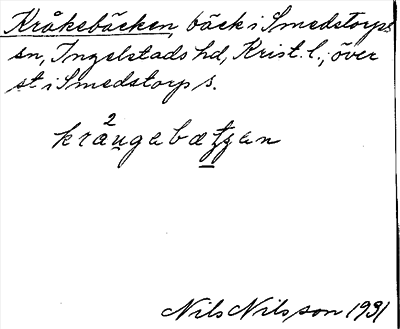 Kråkebäcken, bäck i Smedstorps
sn, Ingelstads hd, Krist. l.; över
st i Smedstorp s.
2
kraugabætjen
Nils Nilsson 1931